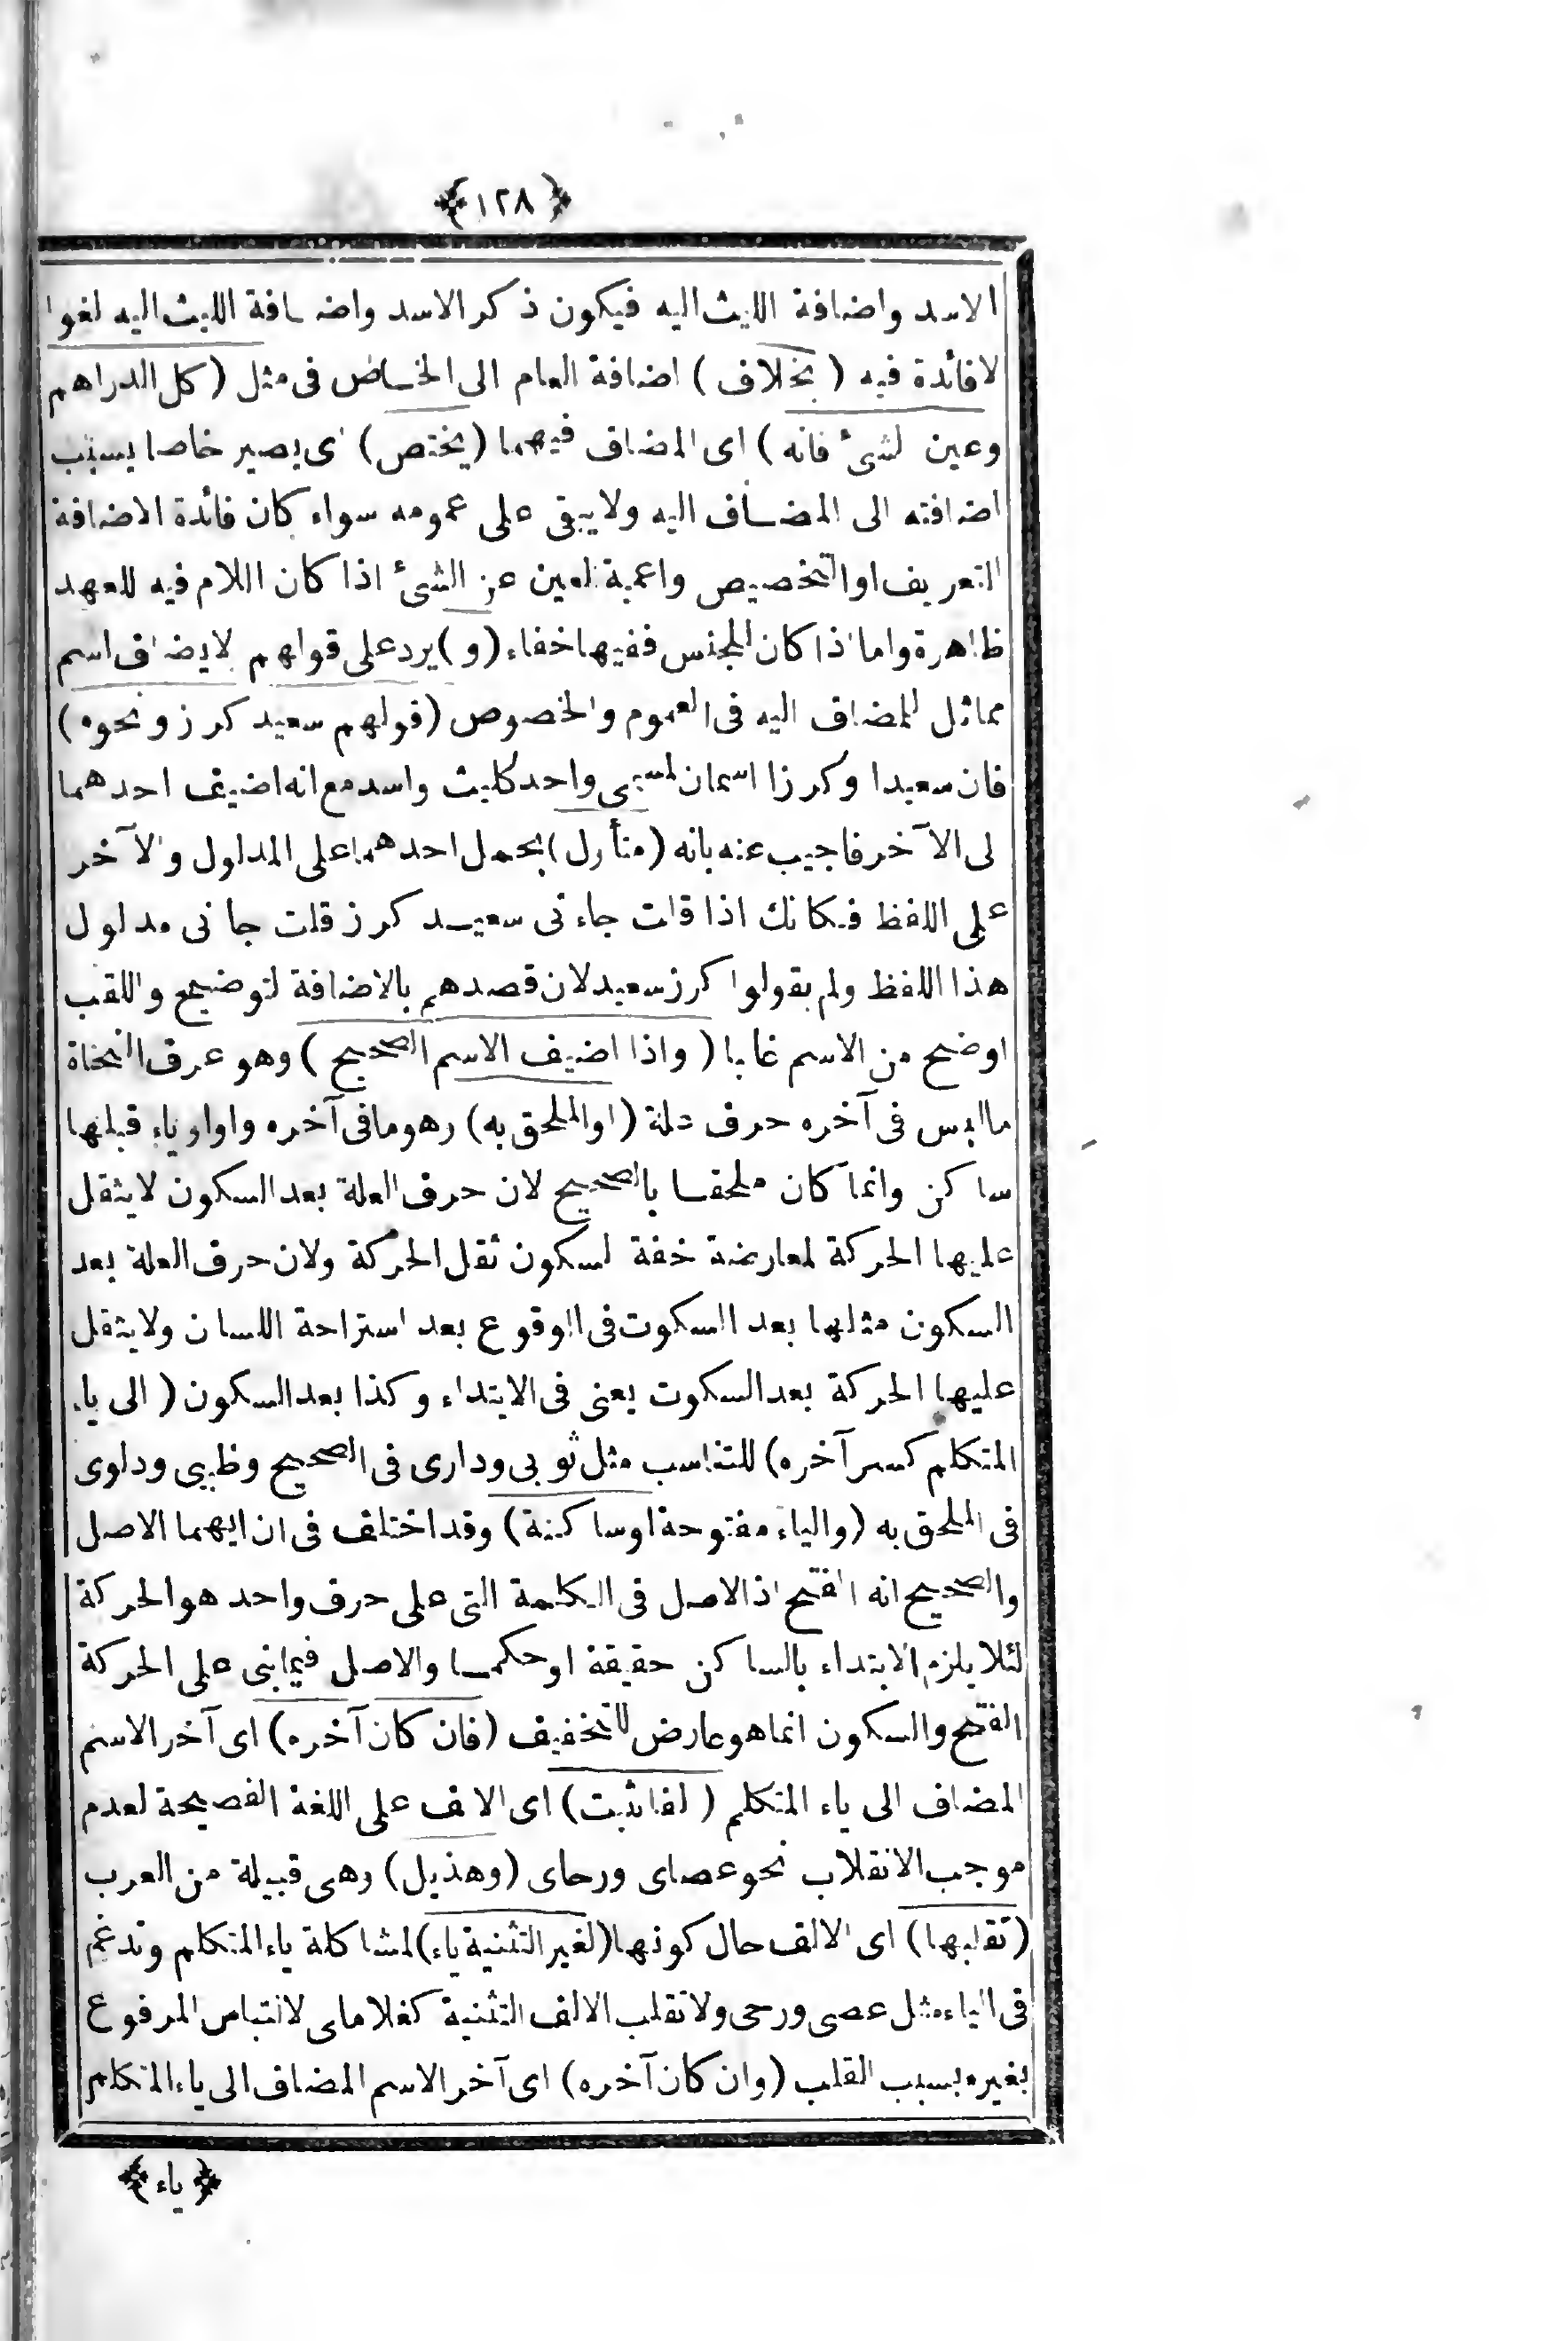 ﴿١٢٨﴾
الاسد واضافة الليث اليه فيكون ذكر الاسد واضافة الليث اليه لغوا
لا فائدة فيه ( بخلاف ) اضافة العام الى الخاص فى مثل ( كل الدراهم
وعين الشئ فانه ) اى المضاف فيهما ( يختص ) اى يصير خاصا بسبب
اضافته الى المضاف اليه ولا يبقى على عمومه سواء كان فائدة الاضافة
التعريف او التخصيص واعمية العين عن الشئ اذا كان اللام فيه للعهد
ظاهرة واما اذا كان للجنس ففيها خفاء ( و ) يرد على قولهم لا يضاف اسم
مماثل للمضاف اليه فى العموم والخصوص ( قولهم سعيد كرز ونحوه )
فان سعيدا وكرزا اسمان لمسمى واحد كليث واسد مع انه اضيف احدهما
الى الآخر فاجيب عنه بانه ( متأول ) بحمل احدهما على المدلول والآخر
على اللفظ فكانك اذا قلت جاءنى سعيد كرز قلت جانى مدلول
هذا اللفظ ولم يقولوا كرز سعيد لان قصدهم بالاضافة التوضيح واللقب
اوضح من الاسم غالبا ( واذا اضيف الاسم الصحيح ) وهو عرف النحاة
ما ليس فى آخره حرف علة ( او الملحق به ) وهو ما فى آخره واو او ياء قبلها
ساكن وانما كان ملحقا بالصحيح لان حرف العلة بعد السكون لا يثقل
عليها الحركة لمعارضة خفة السكون ثقل الحركة ولان حرف العلة بعد
السكون مثلها بعد السكوت فى الوقوع بعد استراحة اللسان ولا يثقل
عليها الحركة بعد السكوت يعنى فى الابتداء وكذا بعد السكون ( الى ياء
المتكلم كسر آخره ) للتناسب مثل ثوبى ودارى فى الصحيح وظبيى ودلوى
فى الملحق به ( والياء مفتوحة او ساكنة ) وقد اختلف فى ان ايهما الاصل
والصحيح انه الفتح اذ الاصل فى الكلمة التى على حرف واحد هو الحركة
لئلا يلزم الابتداء بالساكن حقيقة او حكما والاصل فيما بنى على الحركة
الفتح والسكون انما هو عارض للتخفيف ( فان كان آخره ) اى آخر الاسم
المضاف الى ياء المتكلم ( الفا ثبت ) اى الالف على اللغة الفصيحة لعدم
موجب الانقلاب نحو عصاى ورحاى ( وهذيل ) وهى قبيلة من العرب
( تقلبها ) اى الالف حال كونها ( لغير التثنية ياء ) لمشاكلة ياء المتكلم وتدغم
فى الياء مثل عصى ورحى ولا تقلب الالف التثنية كغلاماى لالتباس المرفوع
بغيره بسبب القلب ( وان كان آخره ) اى آخر الاسم المضاف الى ياء المتكلم
﴿ياء﴾